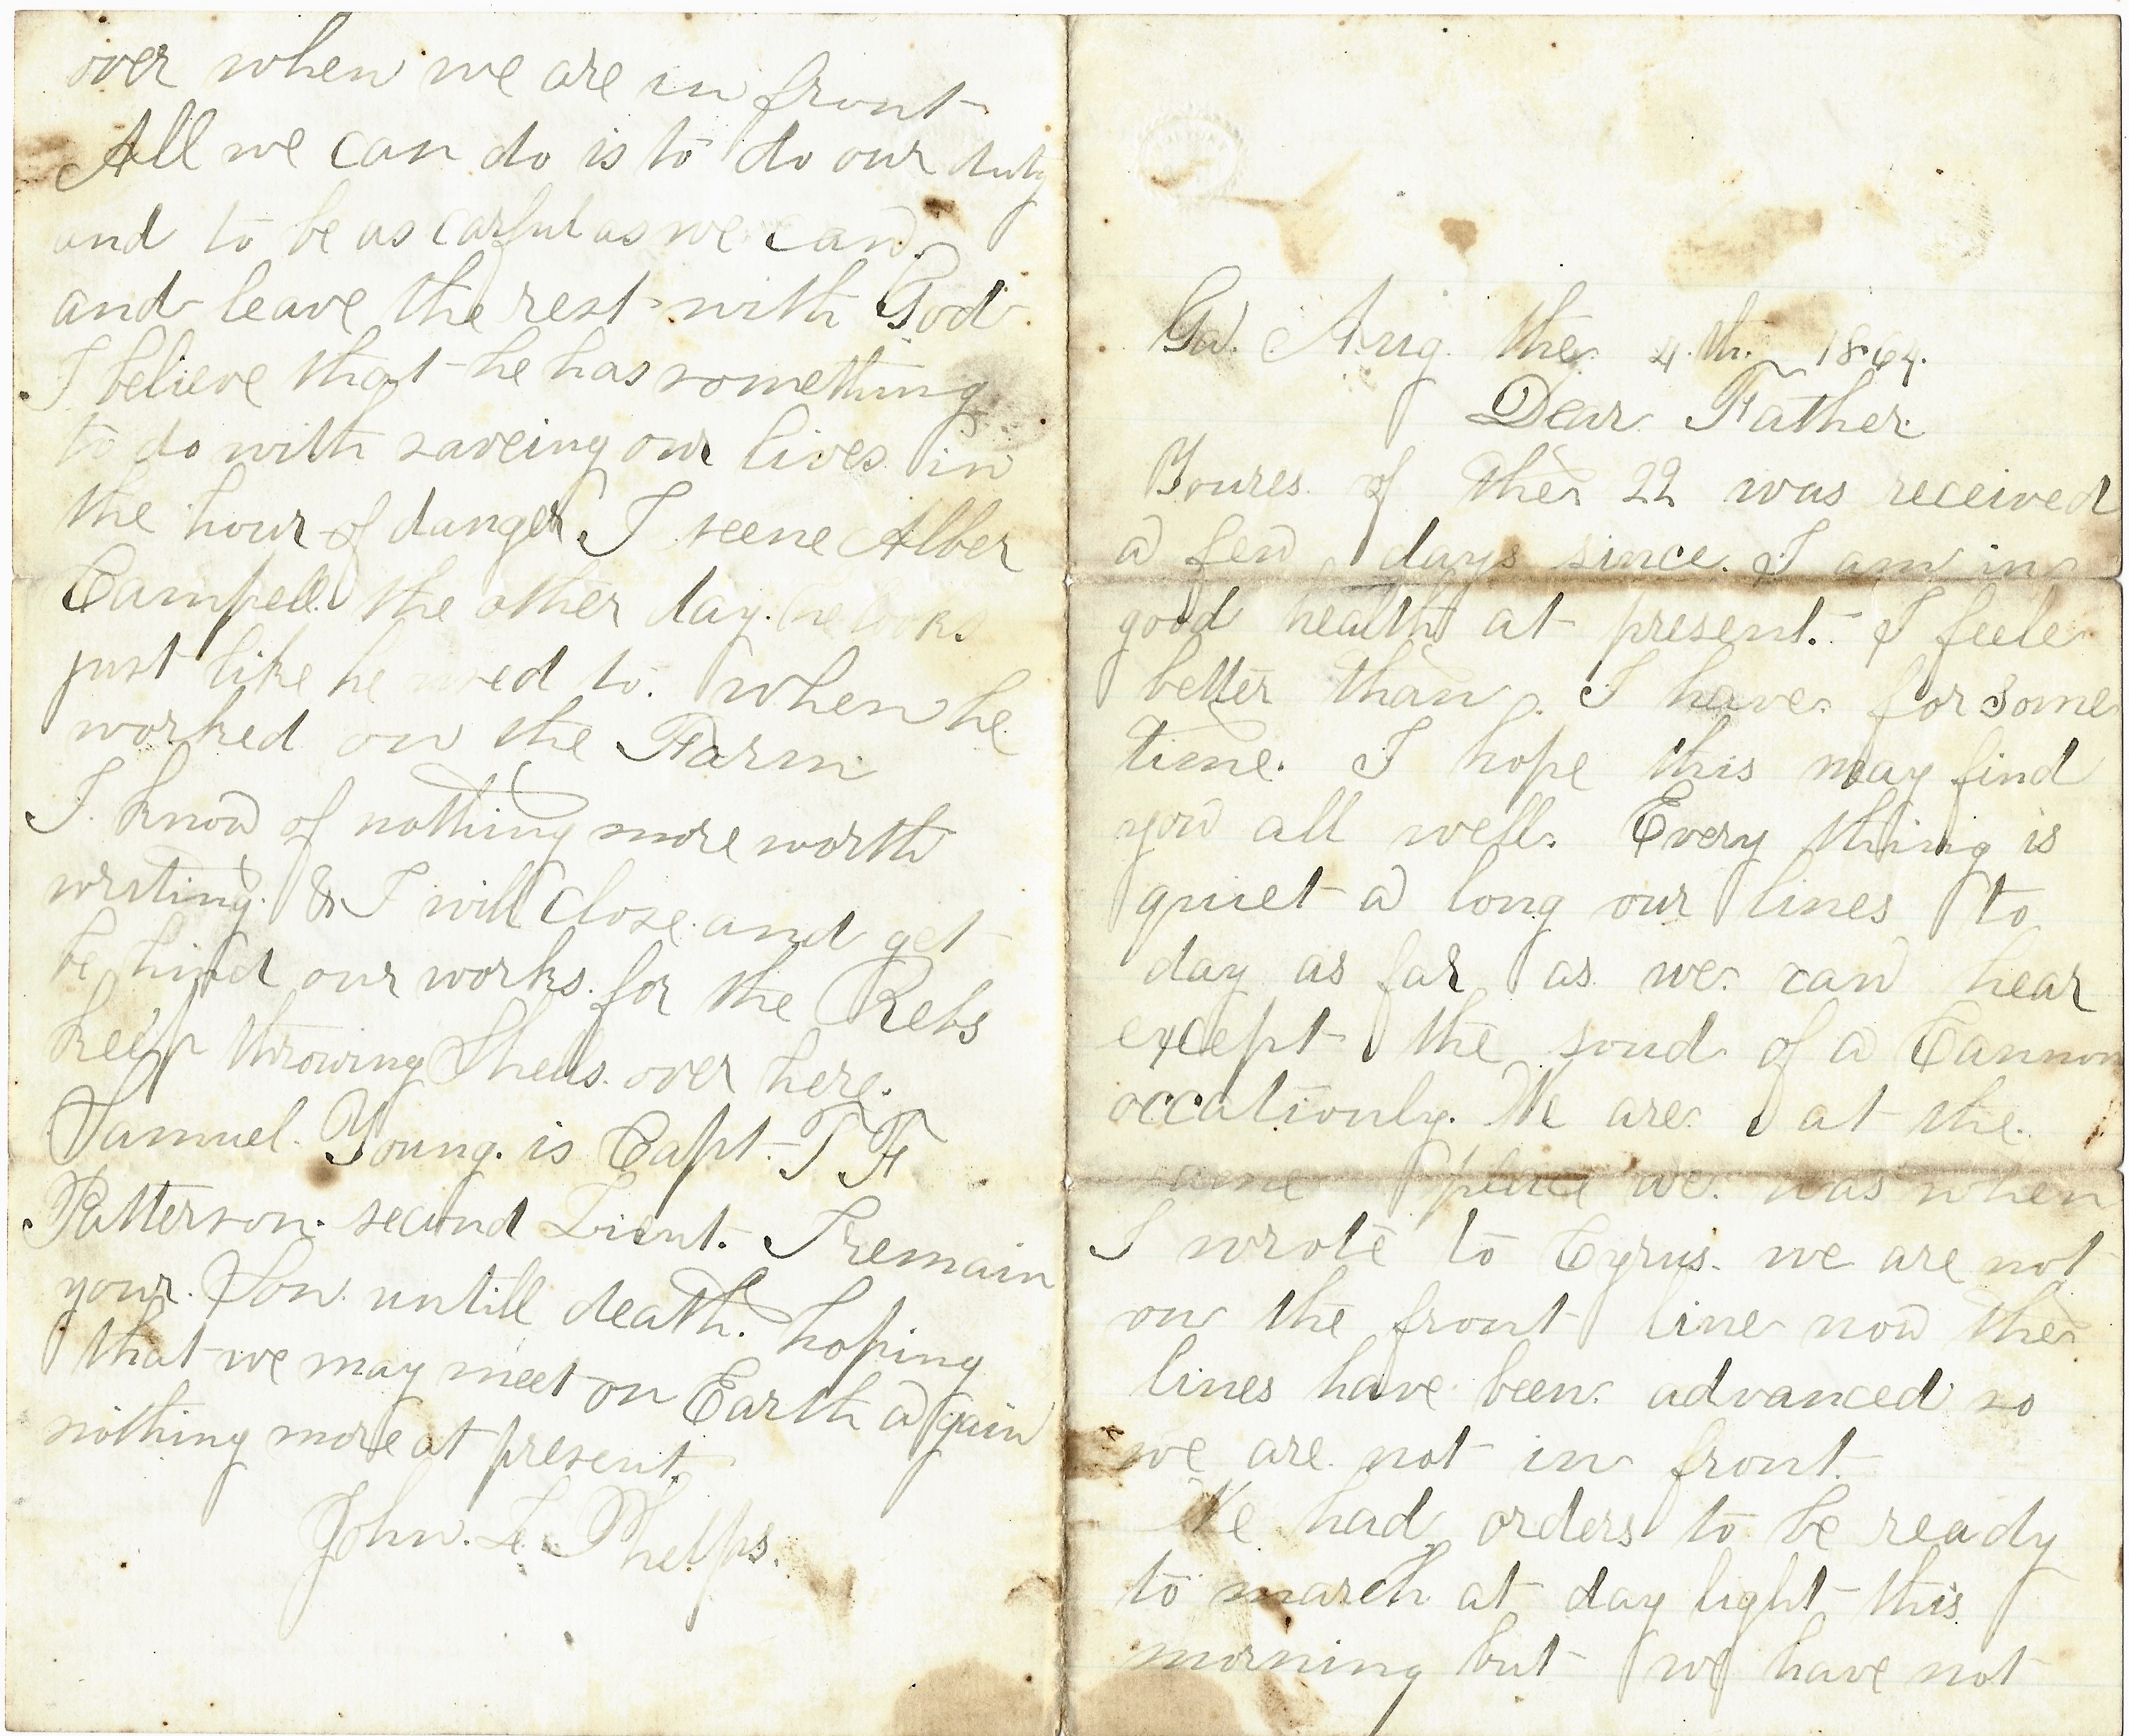 Ga. Aug. the 4.th. 1864.
Dear Father.
Youres of the 22 was received
a few days since. I am in
good health at present. I feele
better than I have for some
time. I hope this may find
you all well. Every thing is
quiet a long our lines to
day as far as we can hear
except the soud of a Cannon
occationly. We are at the
same place we was when
I wrote to Cyrus. we are not
on the front line now the
lines have been advanced so
we are not in front.
We had orders to be ready
to march at day light this
morning but we have not
over when we are in front
All we can do is to do our duty
and to be as carful as we can.
and leave the rest with God.
I believe that he has something
to do with saveing our lives in
the hour of danger. I seene Alber
Campell the other day. he looks
just like he used to. when he
worked on the Farm
I know of nothing more worth
writing. & I will close and get
be hind our works. for the Rebs
keep throwing Shells. over here.
Samuel. Young. is Capt. T F
Patterson. second Lieut. I remain
your. Son. untill death. hoping
that we may meet on Earth a gain
nothing more at present.
John. L. Phelps.